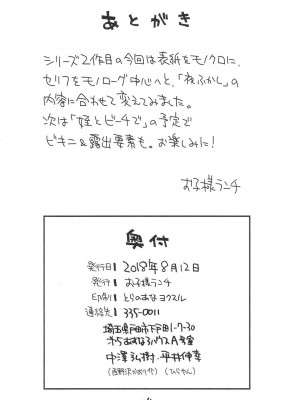 あとがき
シリーズ2作目の今回は表紙をモノクロに、
セリフをモノローグ中心へと、「夜ふかし」の
内容に合わせて変えてみました。
次は「姪とビーチで」の予定で
ビキニ&露出要素も。お楽しみに!
お子様ランチ
奥付
発行日 2018年8月12日
発行 お子様ランチ
印刷 とらのあな ヨクスル
連絡先 335-0011
埼玉県戸田市下戸田1-7-30
A号室
中澤 平井伸幸